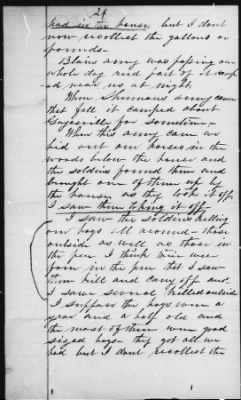 24
had in the house, but I dont
now recollect the gallons or
pounds—
Blairs army was passing one
whole day and part of it camp
ed near us at night.
When Shermans army came
they all st camped about
Gaylesville for sometime—
When this army came we
hid out our horses in the
woods below the house and
the soldiers found them and
brought one of them up by
the house as they took it off
I saw them taking it off—
I saw the soldiers killing
our hogs all around— those
outside as well as those in
the pen I think there were
in the pen that I saw
them kill and carry off and
I saw several killed outside
I suppose the hogs were a
year and a half old and
the most of them were good
sized hogs they got all we
had but I dont recollect the